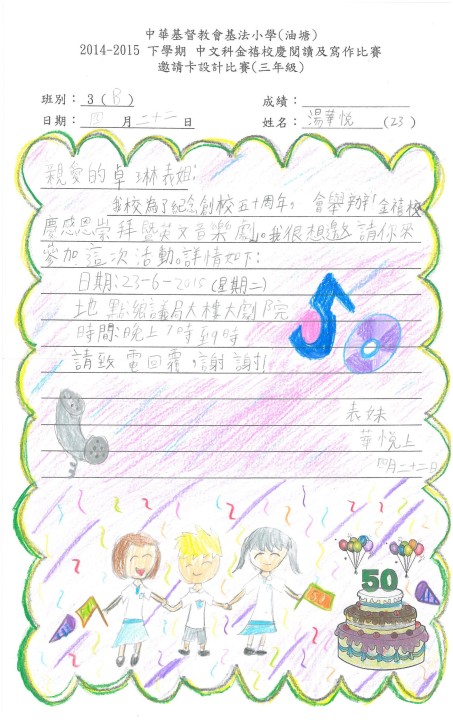 中華基督教會基法小學(油塘)
2014-2015 下學期 中文科金禧校慶閱讀及寫作比賽
邀請卡設計比賽(三年級)
班別： 3 (B) 成績：
日期： 四 月 二十二 日 姓名： 湯華悅 (23)
親愛的卓琳表姐：
我校為了紀念創校五十周年，會舉辦「金禧校
慶感恩崇拜暨英文音樂劇」。我很想邀請你來
參加這次活動。詳情如下：
日期：23-6-2015 (星期二)
地點：鄉議局大樓大劇院
時間：晚上7時至9時
請致電回覆，謝謝！
表妹
華悅上
四月二十二日
50
50